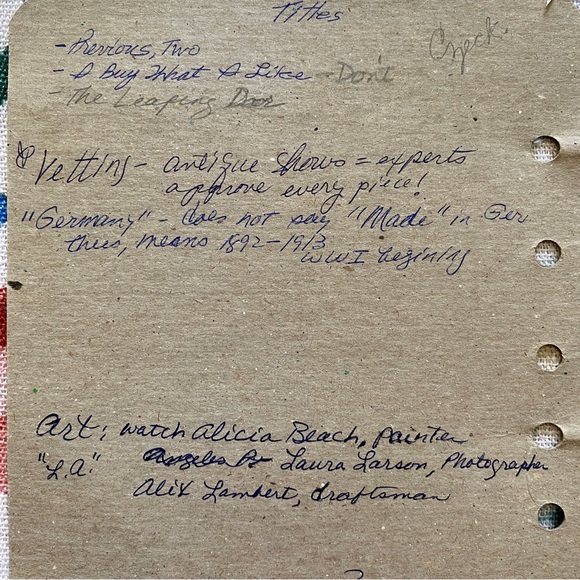 Titles
Czech.
- Previous, Two
- I Buy What I Like - Don't
- The Leaping Door
Vetting - antique shows = experts
approve every piece!
"Germany" - does not say "Made" in Ger
thus, means 1892-1913
WWI begining
Art: watch Alicia Beach, painter
"L.A." Laura Larson, Photographer
Alix Lambert, draftsman